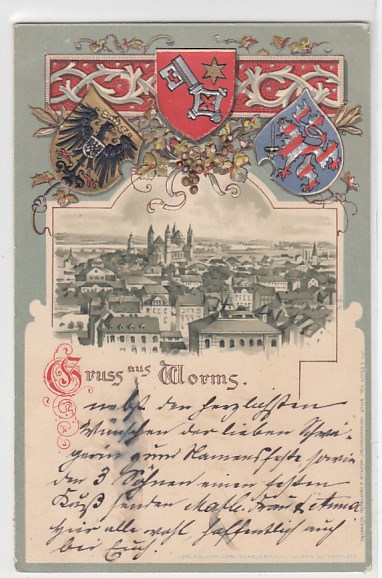 Gruss aus Worms.
nebst den herzlichsten
Wünschen der lieben Schwä-
gerin zum Namensfeste sowie
den 3 Söhnen einen festen
Kuß senden Math. Frau & Anna
hier alle wohl hoffentlich auch
bei Euch.